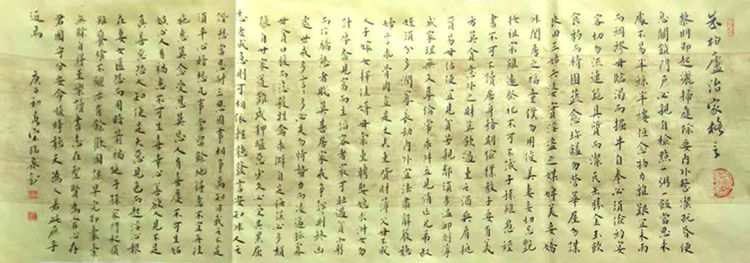 朱柏廬治家格言
黎明即起灑掃庭除要內外整潔既昏便
息關鎖門戶必親自檢點一粥一飯當思來
處不易半絲半縷恒念物力維艱宜未雨
而綢繆毋臨渴而掘井自奉必須儉約宴
客切勿流連器具質而潔瓦缶勝金玉飲
食約而精園蔬愈珍饈勿營華屋勿謀
良田三姑六婆實淫盜之媒婢美妾嬌
非閨房之福童僕勿用俊美妻妾切忌艷
妝祖宗雖遠祭祀不可不誠子孫雖愚經
書不可不讀居身務期儉樸教子要有義
方莫貪意外之財莫飲過量之酒與肩挑
貿易毋佔便宜見貧苦親鄰須多溫卹刻薄
成家理無久享倫常乖舛立見消亡兄弟叔
姪須分多潤寡長幼內外宜法肅辭嚴聽
婦言乖骨肉豈是丈夫重資財薄父母不成
人子嫁女擇佳婿毋索重聘娶媳求淑女勿
計厚奩見富貴而生諂容者最可恥遇貧窮
而作驕態者賤莫甚居家戒爭訟訟則終凶
處世戒多言言多必失毋恃勢力而凌逼孤寡
毋貪口腹而恣殺牲禽乖僻自是悔誤必多頹
惰自甘家道難成狎暱惡少久必受其累屈
志老成急則可相依輕聽發言安知非人之
譖愬當忍耐三思因事相爭焉知非我之不是
須平心暗想凡事當留餘地得意不宜再往
施惠莫念受恩莫忘人有喜慶不可生妒
忌心人有禍患不可生喜幸心善欲人見不是
真善惡恐人知便是大惡見色而起淫心報
在妻女匿怨而用暗箭禍延子孫家門和順
雖饔飧不繼亦有餘歡國課早完即囊橐
無餘自得至樂讀書志在聖賢為官心存
君國守分安命順時聽天為人若此庶乎
近焉
庚子初夏宋瑞